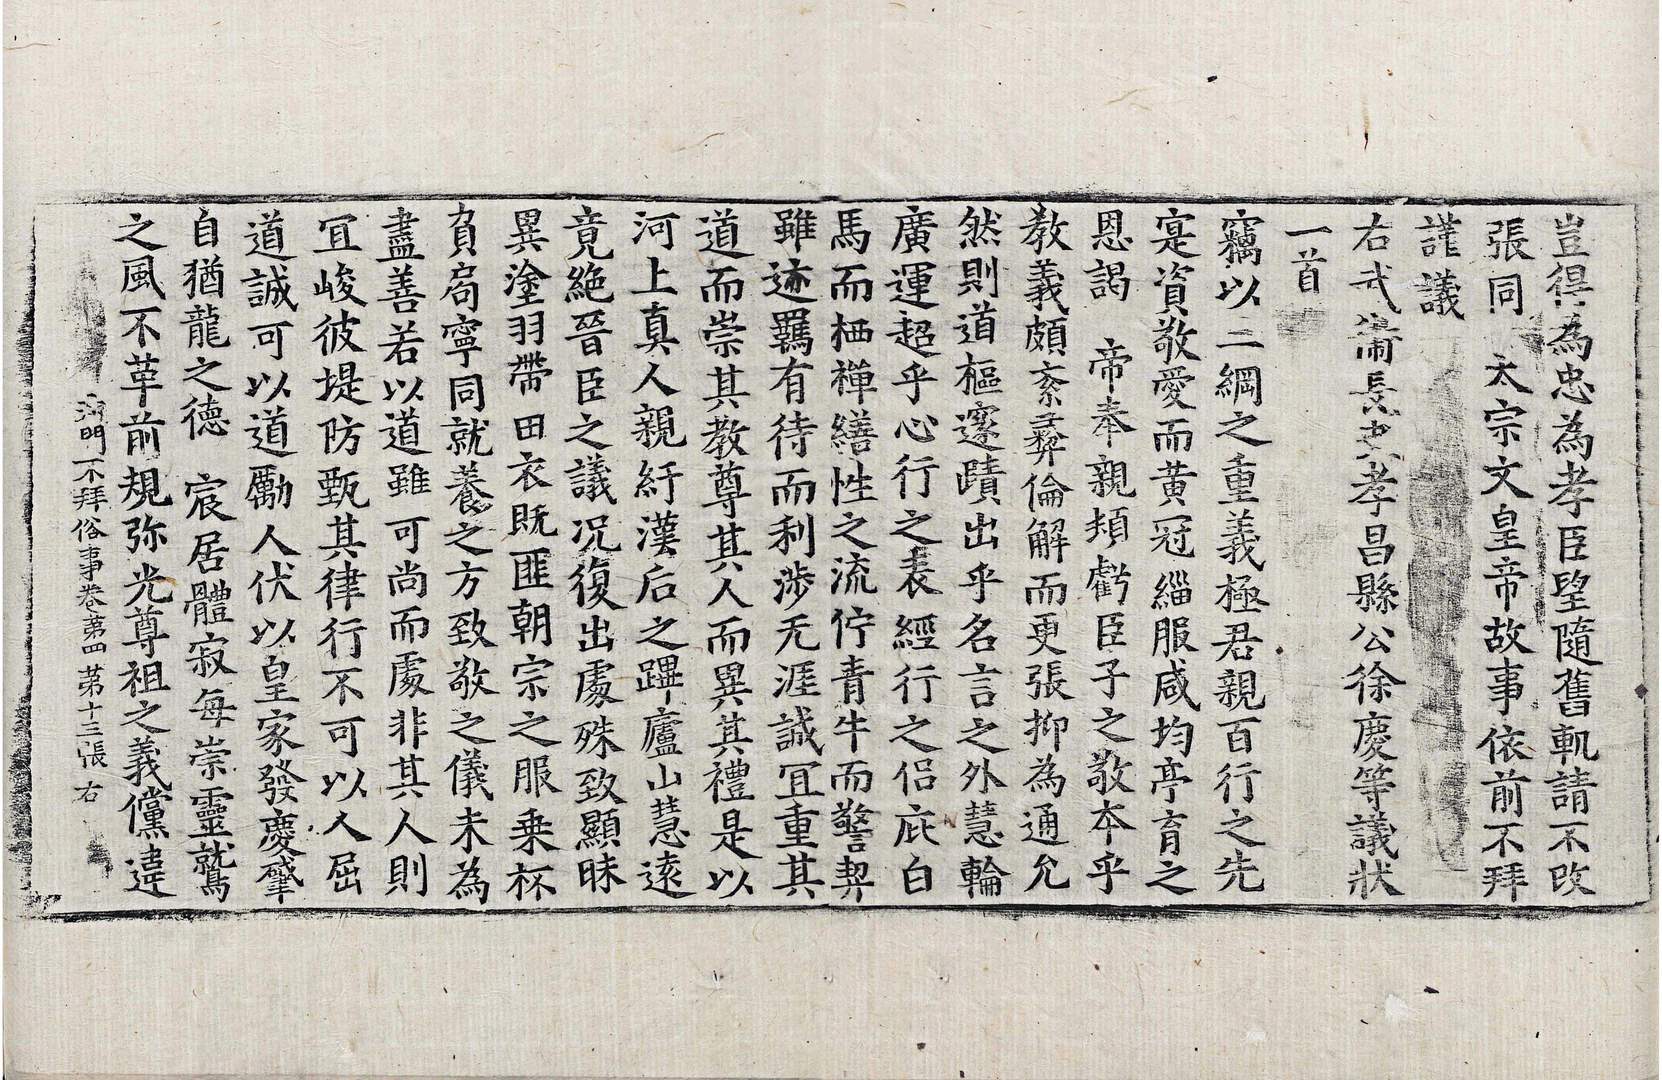 豈得為忠為孝臣望隨舊軌請不改
張同　太宗文皇帝故事依前不拜
謹議
右武衛長史孝昌縣公徐慶等議狀
一首
竊以二綱之重義極君親百行之先
寔資敬愛而黃冠緇服咸均亭育之
恩謁　帝奉親頬虧臣子之敬本乎
教義頗紊彛倫解而更張抑為通允
然則道樞邃賾出乎名言之外慧輪
廣運超乎心行之表經行之侶庇白
馬而栖禪繕性之流佇青牛而警契
雖迹羈有待而利涉无涯誠冝重其
道而崇其教尊其人而異其禮是以
河上真人親紆漢后之蹕廬山慧遠
竟絶晉臣之議況復出處殊致顯昧
異塗羽帶田衣旣匪朝宗之服乗杯
負局寧同就養之方致敬之儀未為
盡善若以道雖可尚而處非其人則
冝峻彼堤防甄其律行不可以人屈
道誠可以道勵人伏以皇家發慶肇
自猶龍之德　宸居體寂每崇靈鷲
之風不革前規弥光尊祖之義儻違
沙門不拜俗事卷第四　第十三張　右